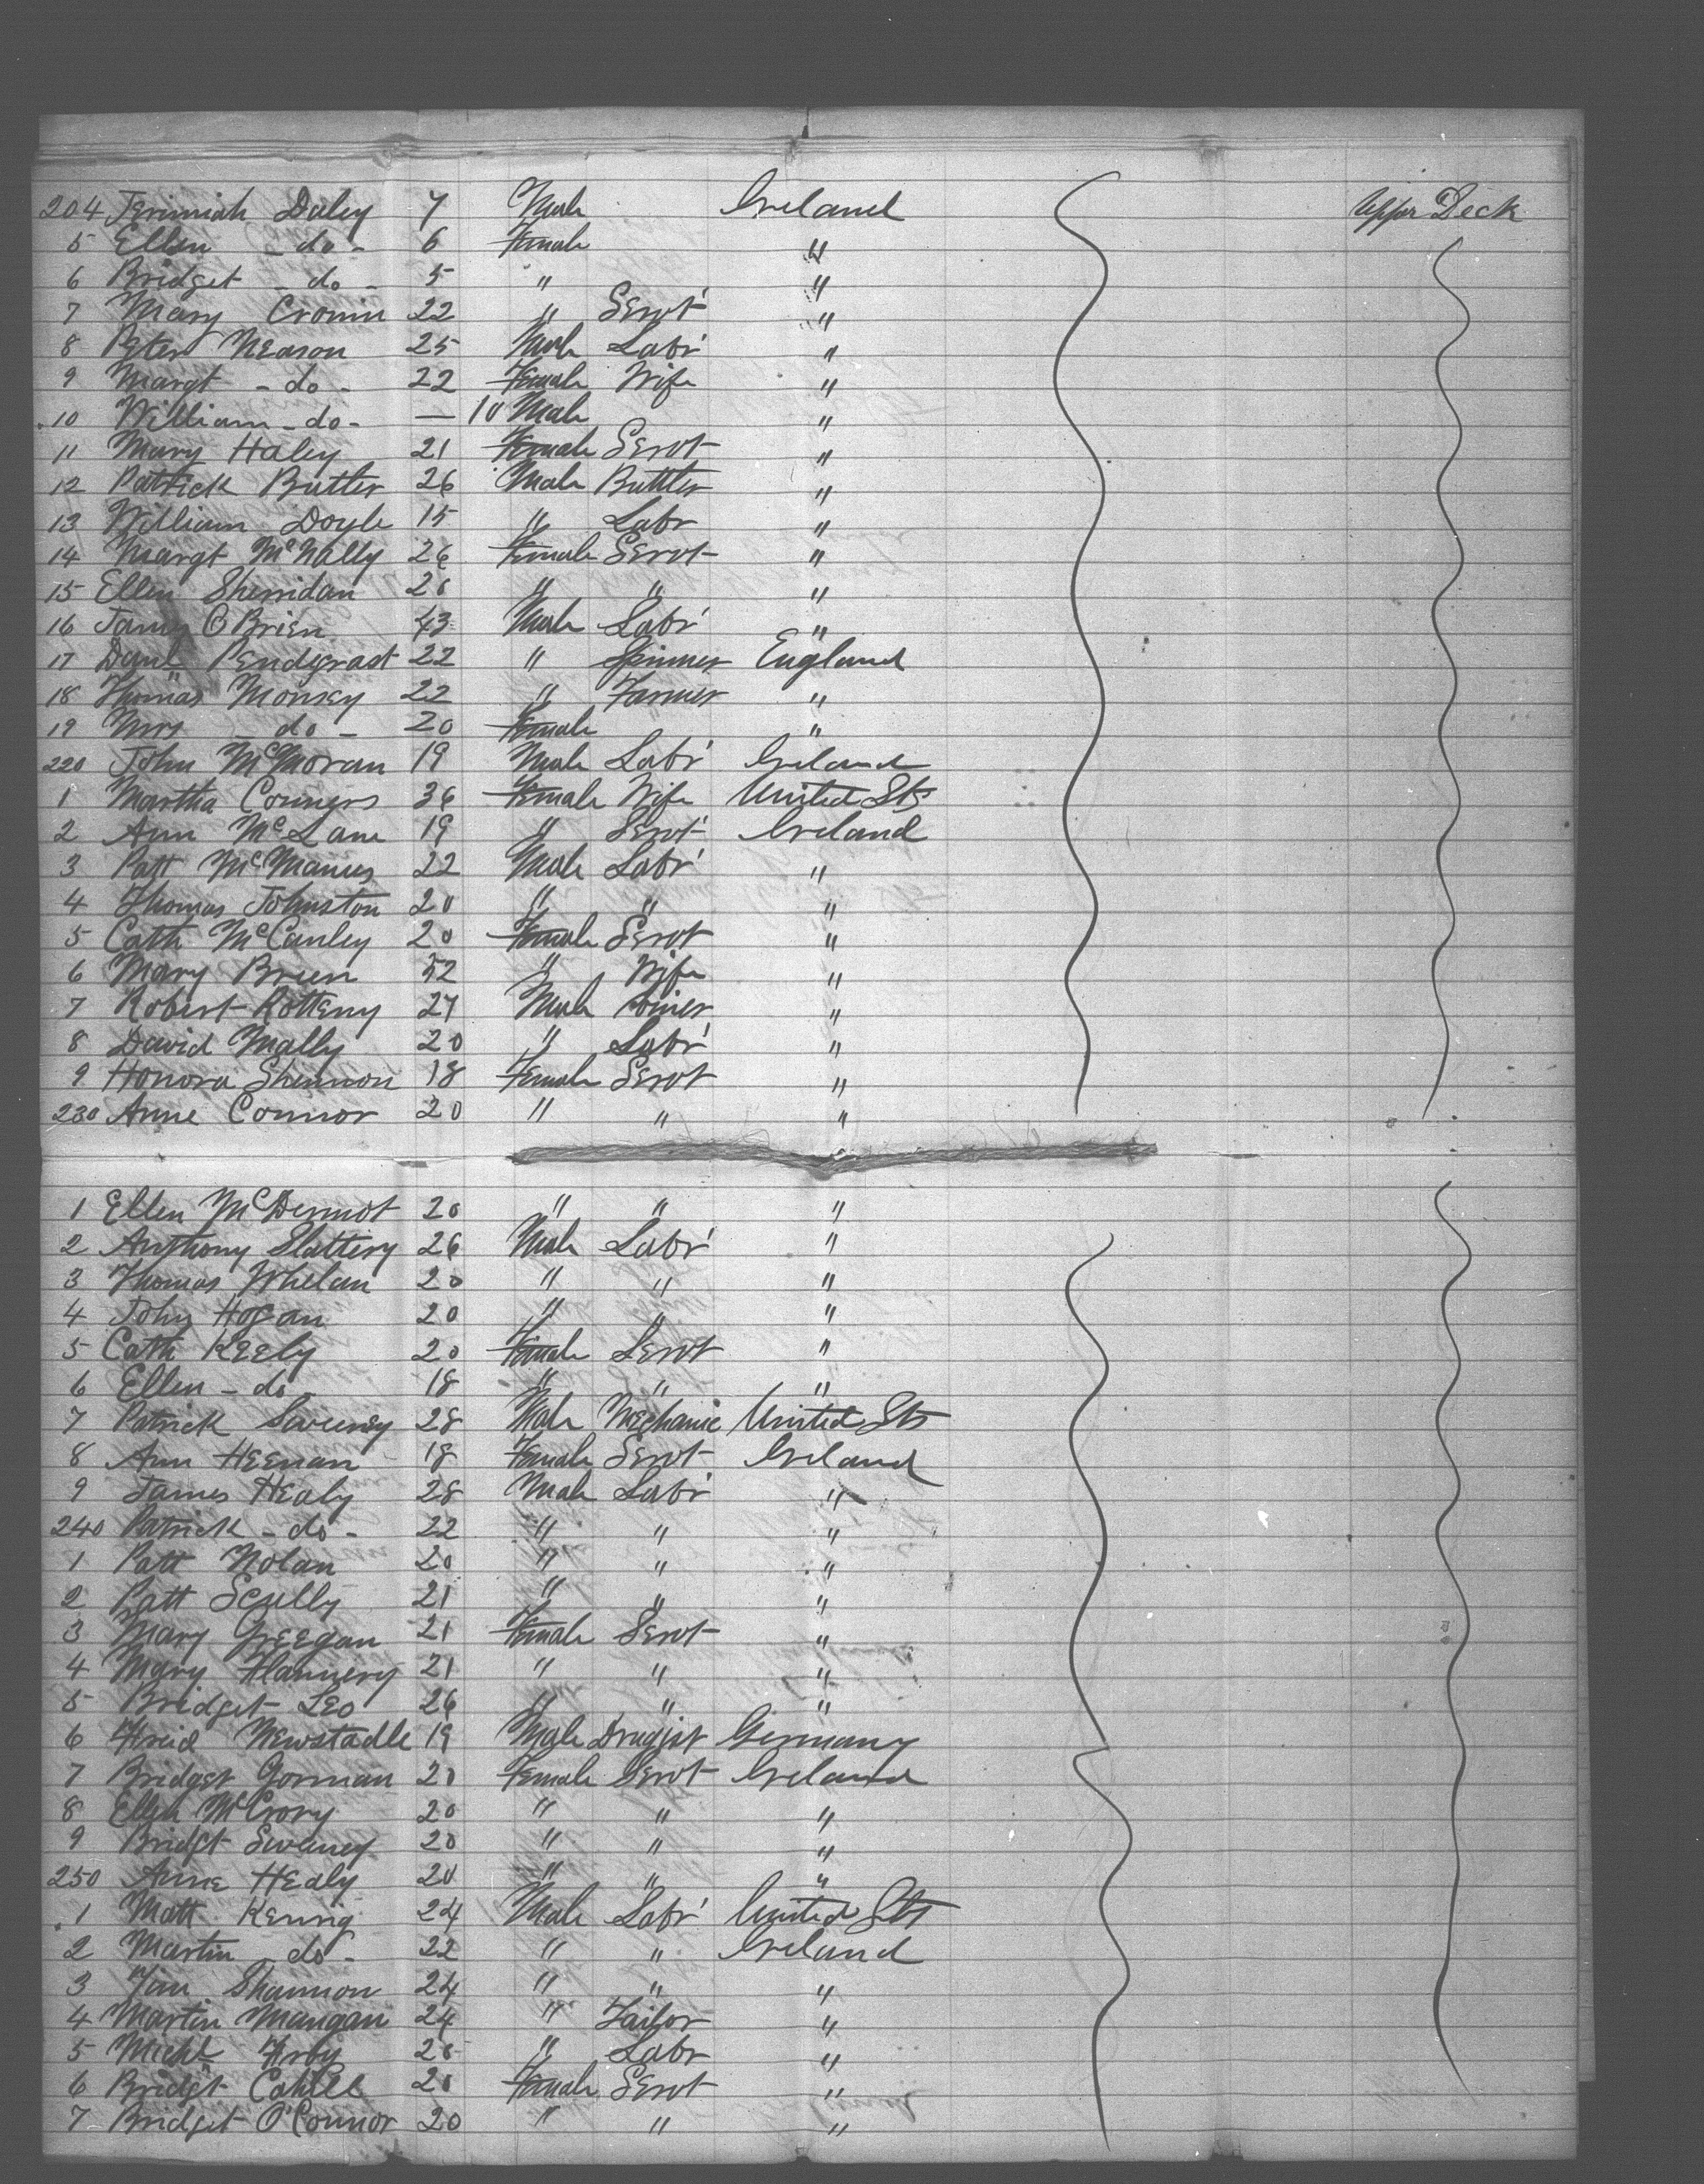 204 Jerimiah Daley 7 Male Ireland Upper Deck
5 Ellen - do - 6 Female "
6 Bridget - do - 5 " "
7 Mary Cronin 22 " Servt "
8 Peter Neason 25 Male Labr "
9 Margt - do - 22 Female Wife "
10 William - do - — 10 Male "
11 Mary Haley 21 Female Servt "
12 Patrick Butler 26 Male Buttler "
13 William Doyle 15 " Labr "
14 Margt McNally 26 Female Servt "
15 Ellen Sherridan 20 " " "
16 James O Brien 43 Male Labr "
17 Danl Pendegrast 22 " Spinner England
18 Thomas Monsey 22 " Farmer "
19 Mrs - do - 20 Female "
220 John McMoran 19 Male Labr Ireland
1 Martha Conners 36 Female Wife United Sts
2 Ann McLane 19 " Servt Ireland
3 Patt McManus 22 Male Labr "
4 Thomas Johnston 20 " " "
5 Cath McCanley 20 Female Servt "
6 Mary Breen 32 " Wife "
7 Robert Rotteny 27 Male Joiner "
8 David Mally 20 " Labr "
9 Honora Shennon 18 Female Servt "
230 Anne Connor 20 " " "
1 Ellen McDermot 20 " " "
2 Anthony Slattery 26 Male Labr "
3 Thomas Whelan 20 " " "
4 John Hogan 20 " " "
5 Cath Keely 20 Female Servt "
6 Ellen - do - 18 " " "
7 Patrick Sweeney 28 Male Mechanic United Sts
8 Ann Heenan 18 Female Servt Ireland
9 James Healy 28 Male Labr "
240 Patrick - do - 22 " " "
1 Patt Nolan 20 " " "
2 Patt Scully 21 " " "
3 Mary Greegan 21 Female Servt "
4 Mary Flannery 21 " " "
5 Bridget Leo 26 " " "
6 Fried Newstadle 19 Male Drugist Germany
7 Bridget Gorman 20 Female Servt Ireland
8 Ellen McCrory 20 " " "
9 Bridgt Sweeney 20 " " "
250 Anne Healy 20 " " "
1 Matt Kennig 24 Male Labr United Sts
2 Martin - do - 22 " " Ireland
3 Tim Shannon 24 " " "
4 Martin Mangan 24 " Tailor "
5 Michl 20 " Labr "
6 Bridgt Cahill 20 Female Servt "
7 Bridget O'Connor 20 " " "